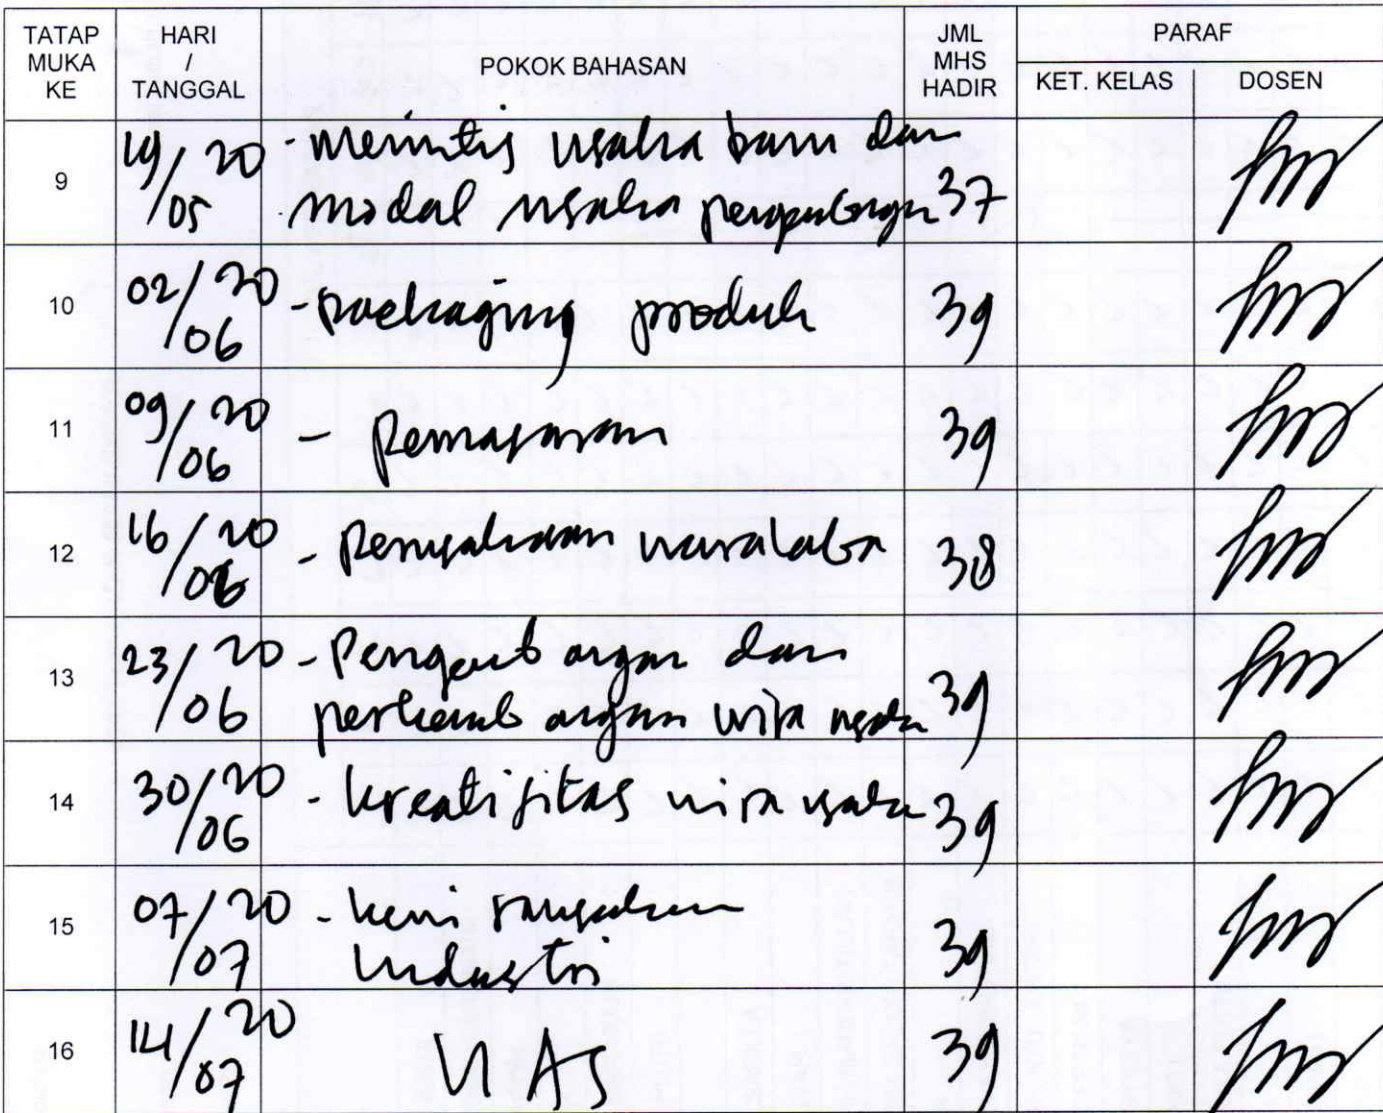 TATAP MUKA KE
HARI / TANGGAL
POKOK BAHASAN
JML MHS HADIR
PARAF
KET. KELAS
DOSEN
9 19/05 20 - Merintis usaha baru dan
modal usaha 37
10 02/06 20 - packaging produk 39
11 09/06 20 - Pemasaran 39
12 16/06 20 - Perusahaan waralaba 38
13 23/06 20 - Pengembangan dan
perkembangan wira usaha 39
14 30/06 20 - kreatifitas wira usaha 39
15 07/07 20 - kewirausahaan
Industri 39
16 14/07 20 UAS 39